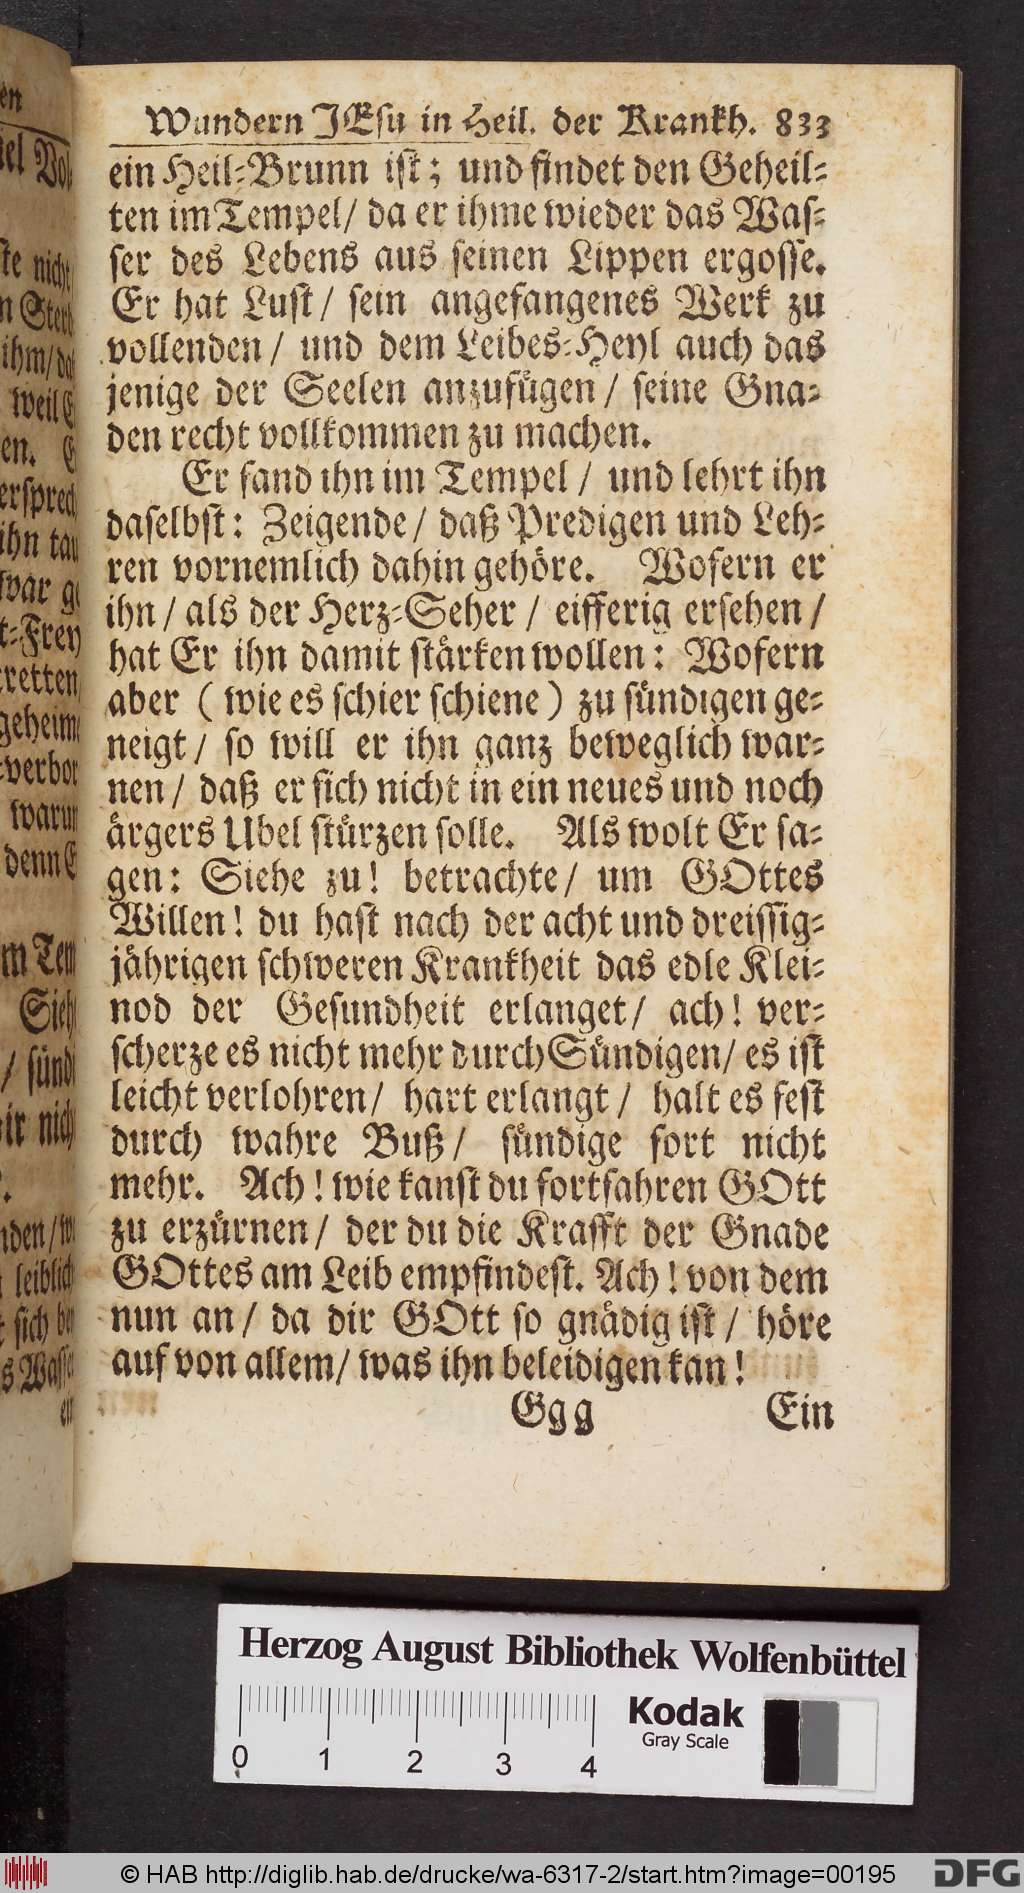 Wundern JEsu in Heil. der Krankh. 833
ein Heil-Brunn ist; und findet den Geheil-
ten im Tempel/ da er ihme wieder das Was-
ser des Lebens aus seinen Lippen ergosse.
Er hat Lust/ sein angefangenes Werk zu
vollenden/ und dem Leibes-Heyl auch das
jenige der Seelen anzufügen/ seine Gna-
den recht vollkommen zu machen.
Er fand ihn im Tempel/ und lehrt ihn
daselbst: Zeigende/ daß Predigen und Leh-
ren vornemlich dahin gehöre. Wofern er
ihn/ als der Herz-Seher/ eifferig ersehen/
hat Er ihn damit stärken wollen: Wofern
aber (wie es schier schiene) zu sündigen ge-
neigt/ so will er ihn ganz beweglich war-
nen/ daß er sich nicht in ein neues und noch
ärgers Ubel stürzen solle. Als wolt Er sa-
gen: Siehe zu! betrachte/ um GOttes
Willen! du hast nach der acht und dreissig-
jährigen schweren Krankheit das edle Klei-
nod der Gesundheit erlanget/ ach! ver-
scherze es nicht mehr durch Sündigen/ es ist
leicht verlohren/ hart erlangt/ halt es fest
durch wahre Buß/ sündige fort nicht
mehr. Ach! wie kanst du fortfahren GOtt
zu erzürnen/ der du die Krafft der Gnade
GOttes am Leib empfindest. Ach! von dem
nun an/ da dir GOtt so gnädig ist/ höre
auf von allem/ was ihn beleidigen kan!
Ggg Ein
Herzog August Bibliothek Wolfenbüttel
Kodak
Gray Scale
0 1 2 3 4
© HAB http://diglib.hab.de/drucke/wa-6317-2/start.htm?image=00195
DFG